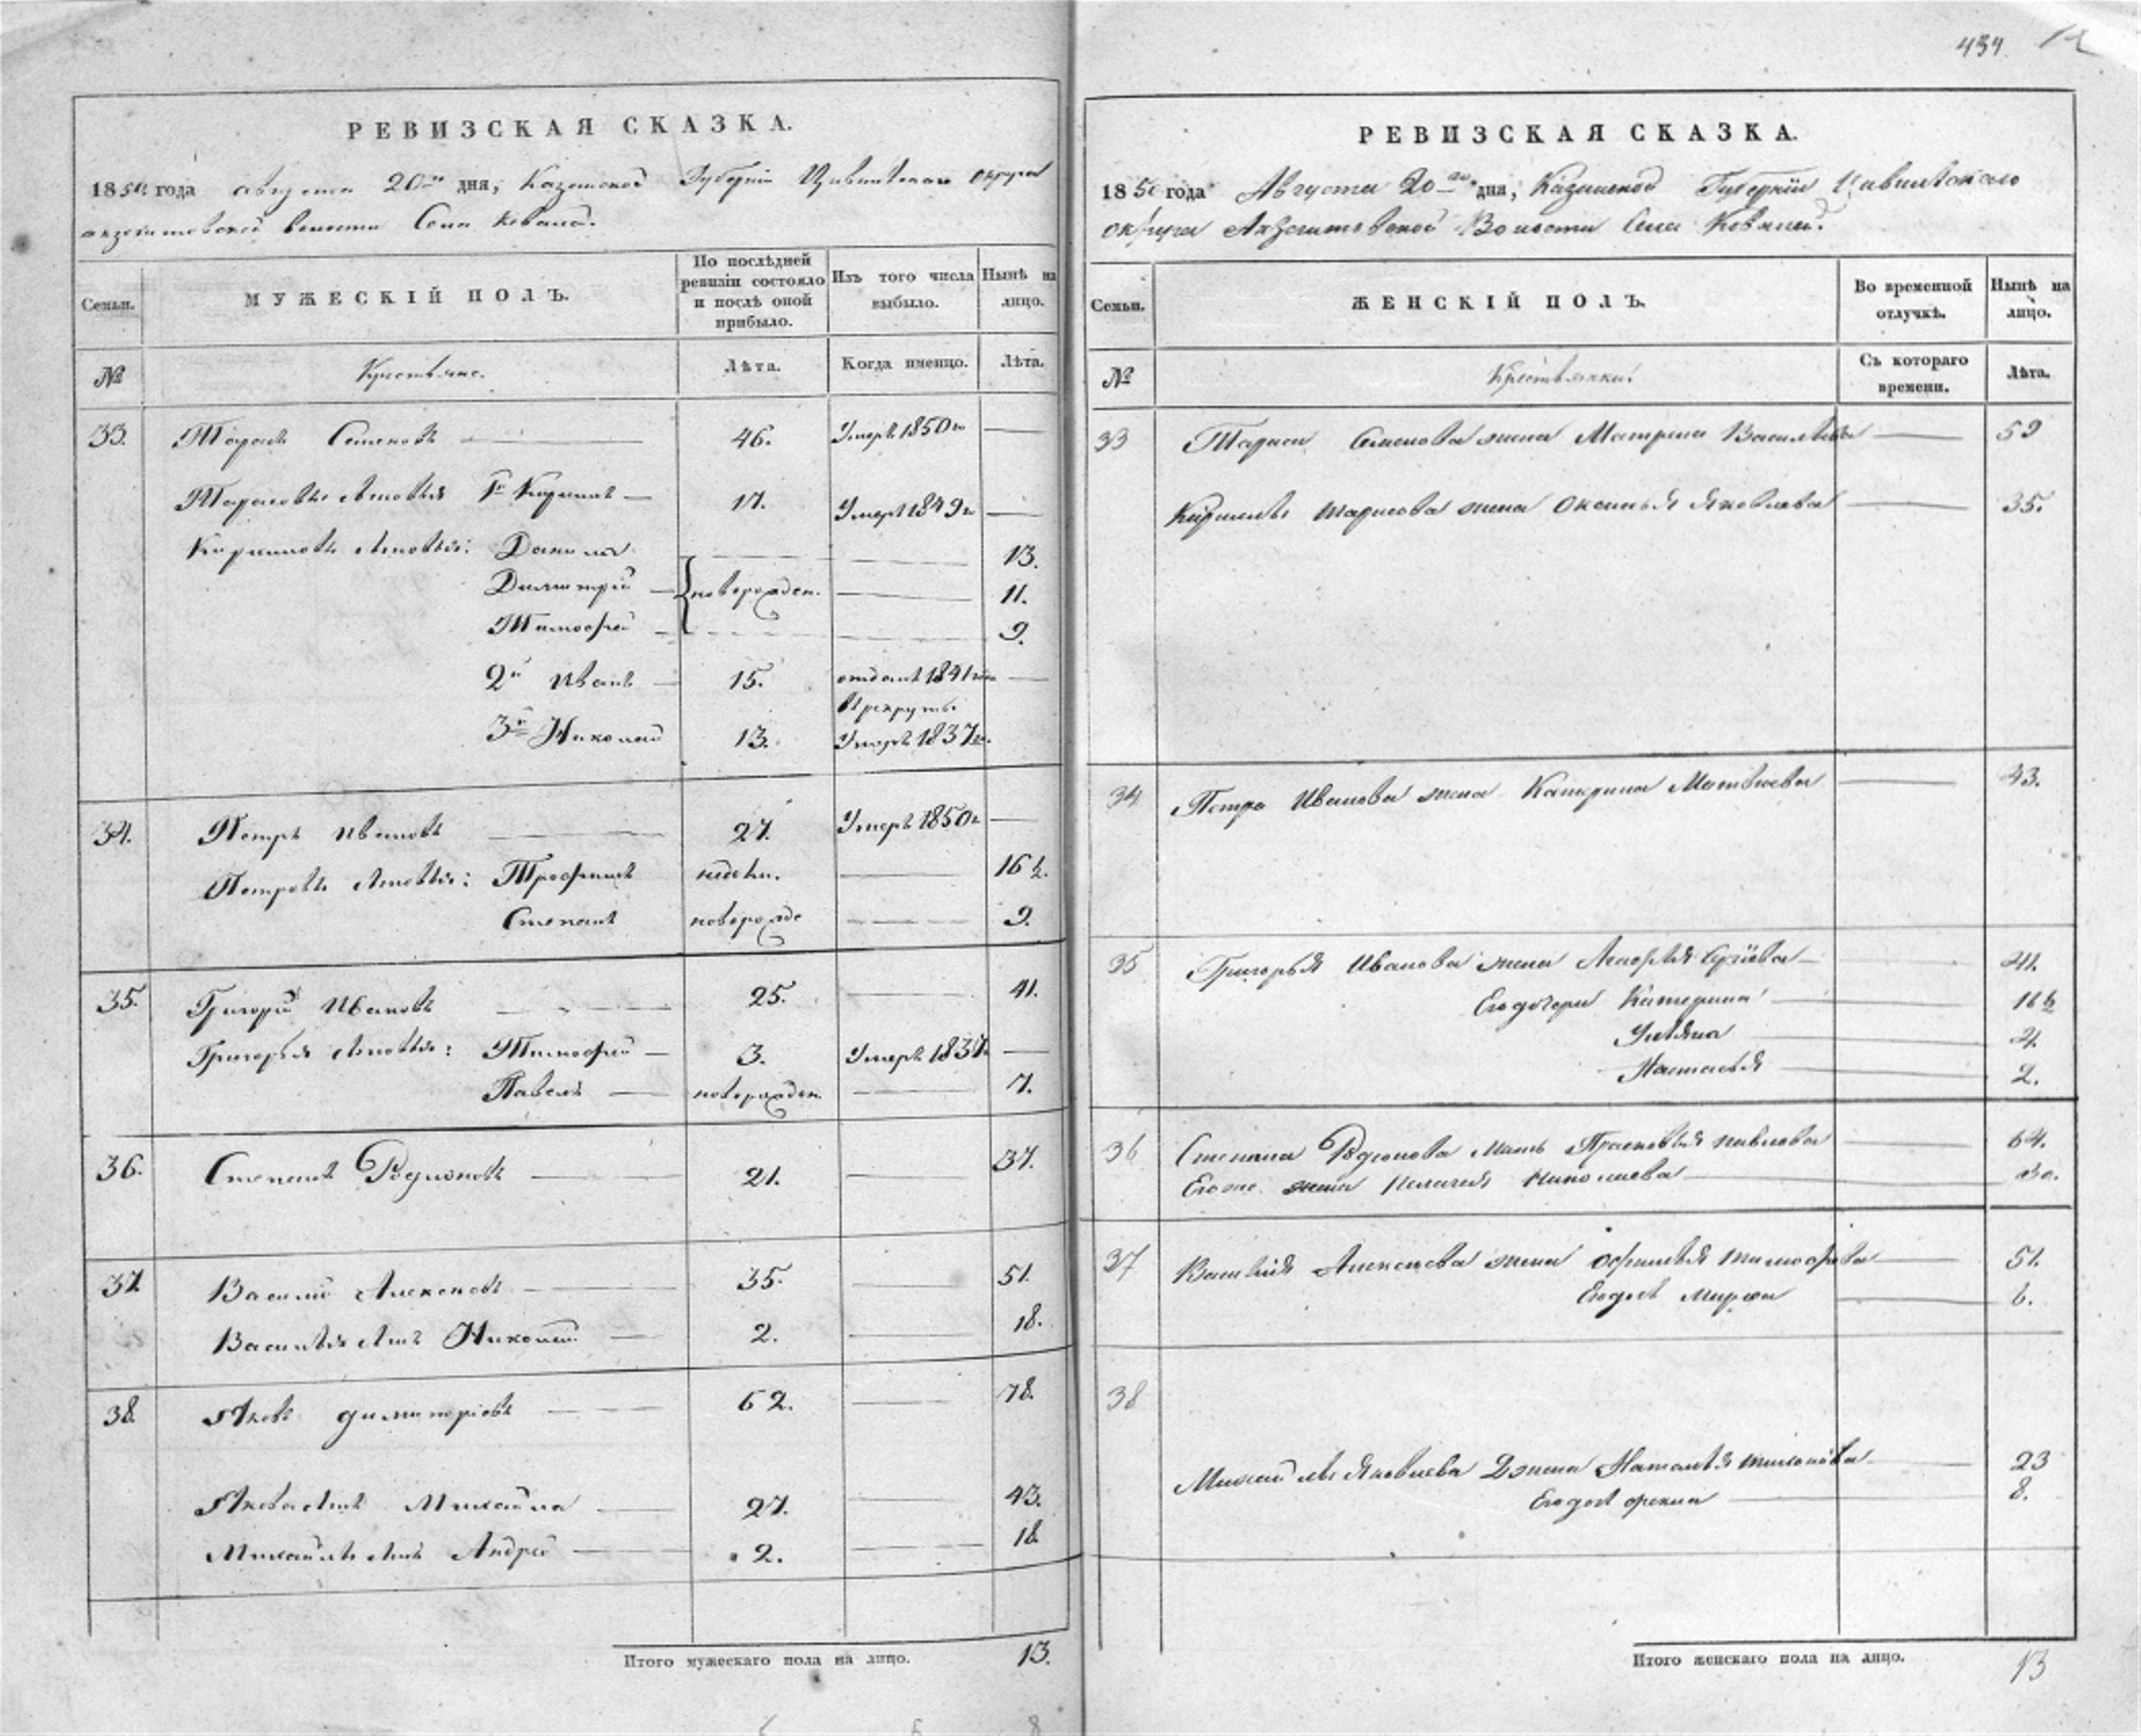 434.
РЕВИЗСКАЯ СКАЗКА.
1850 года августа 20го дня, Казанской Губерніи Цивильскаго округа
волости Села Ковалей.
Семьи. МУЖЕСКІЙ ПОЛЪ. По послѣдней ревизіи состояло и послѣ оной прибыло. Изъ того числа выбыло. Нынѣ на лицо.
№ Крестьяне. Лѣта. Когда именно. Лѣта.
33. Тарасъ Семеновъ 46. Умеръ 1850го —
Тарасовы сыновья 1й Кирилъ 17. Умеръ 1849го —
Кириловы сыновья: Данила 13.
Дмитрей новорожден. 11.
Тимофей 9.
2й Иванъ 15. отданъ 1841 года —
в рекруты
3й Николай 13. Умеръ 1837го.
34. Петръ Ивановъ 27. Умеръ 1850го —
Петровы сыновья: Трофимъ недѣли. 16½.
Степанъ новорожде 9.
35. Григорій Ивановъ 25. 41.
Григорья сыновья: Тимофей 3. Умеръ 1837го —
Павелъ новорожден. 7.
36. Степанъ Родионовъ 21. 37.
37. Василий Алексеевъ 35. 51.
Василья сынъ Николай 2. 18.
38. Яковъ Димитріевъ 62. 78.
Якова сынъ Михайла 27. 43.
Михайлы сынъ Андрей 2. 18.
Итого мужескаго пола на лицо. 13.
РЕВИЗСКАЯ СКАЗКА.
1850 года Августа 20го дня, Казанской Губерніи Цивильскаго
округа Волости Села Ковалей.
Семьи. ЖЕНСКІЙ ПОЛЪ. Во временной отлучкѣ. Нынѣ на лицо.
№ Крестьянки. Съ котораго времени. Лѣта.
33 Тараса Семенова жена Матрена Васильева 59
Кирилы Тарасова жена Оксинья Яковлева 35.
34 Петра Иванова жена Катерина Матвеева 43.
35 Григорья Иванова жена 41.
Его дочери Катерина 16½
Ульяна 4.
Настасья 2.
36 Степана Родионова мать Прасковья Павлова 64.
Его же жена Пелагея Николаева 30.
37 Василія Алексеева жена Офимья Тимофеева 51.
Его дочь Марфа 6.
38
Михайлы Яковлева 2 жена Наталья 23
Его дочь 8.
Итого женскаго пола на лицо. 13